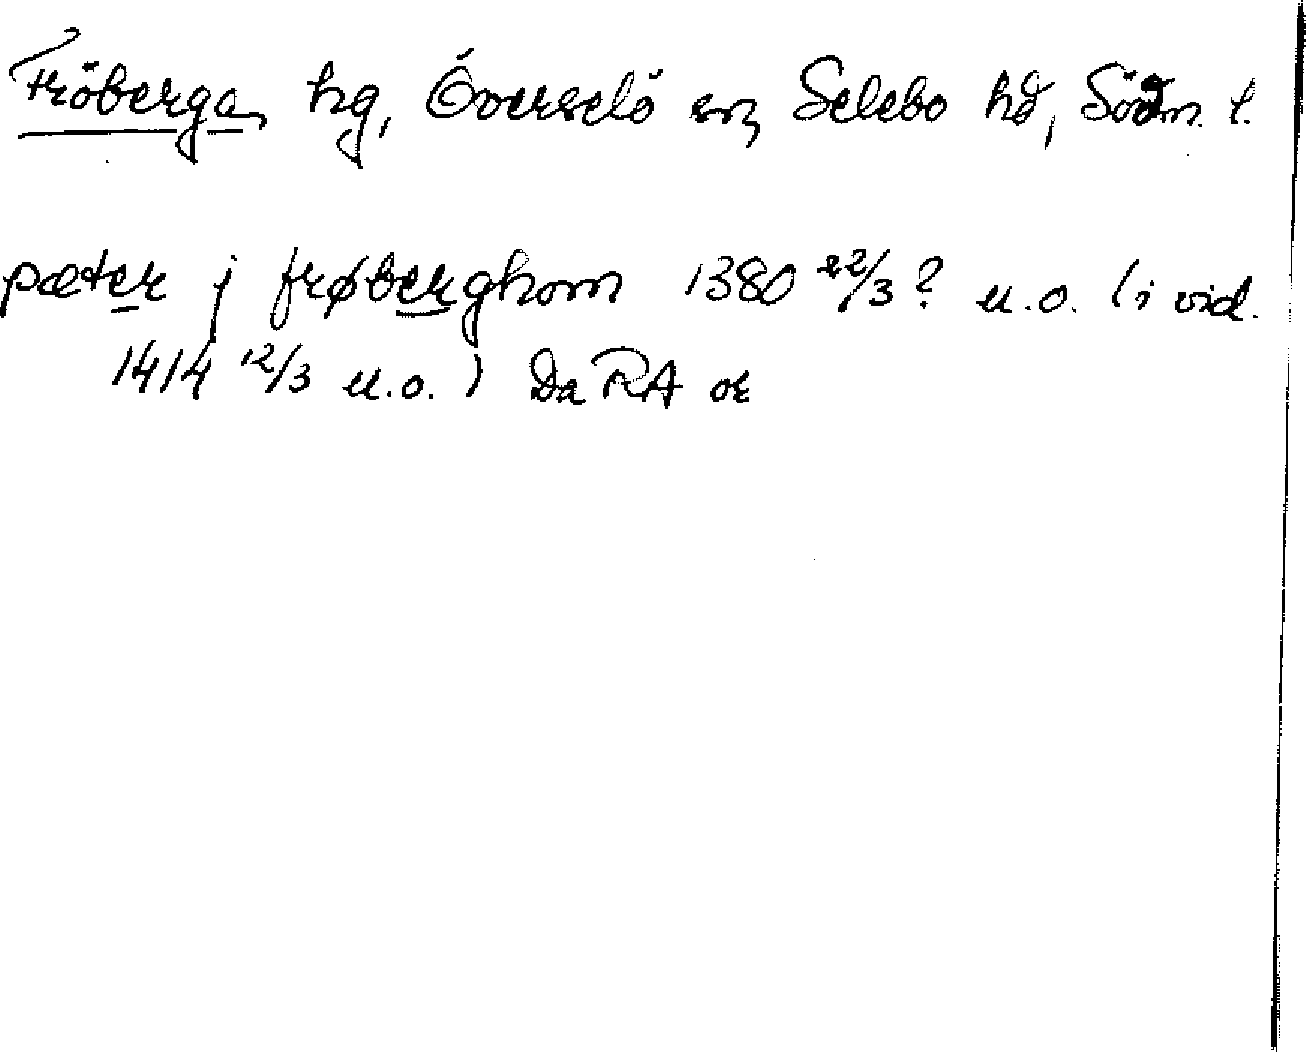 Fröberga, hg, Överselö sn, Selebo hd, Södm. l.
pæter j frøberghom 1380 22/3? u.o. (i vid.
1414 12/3 u.o.) Da RA or